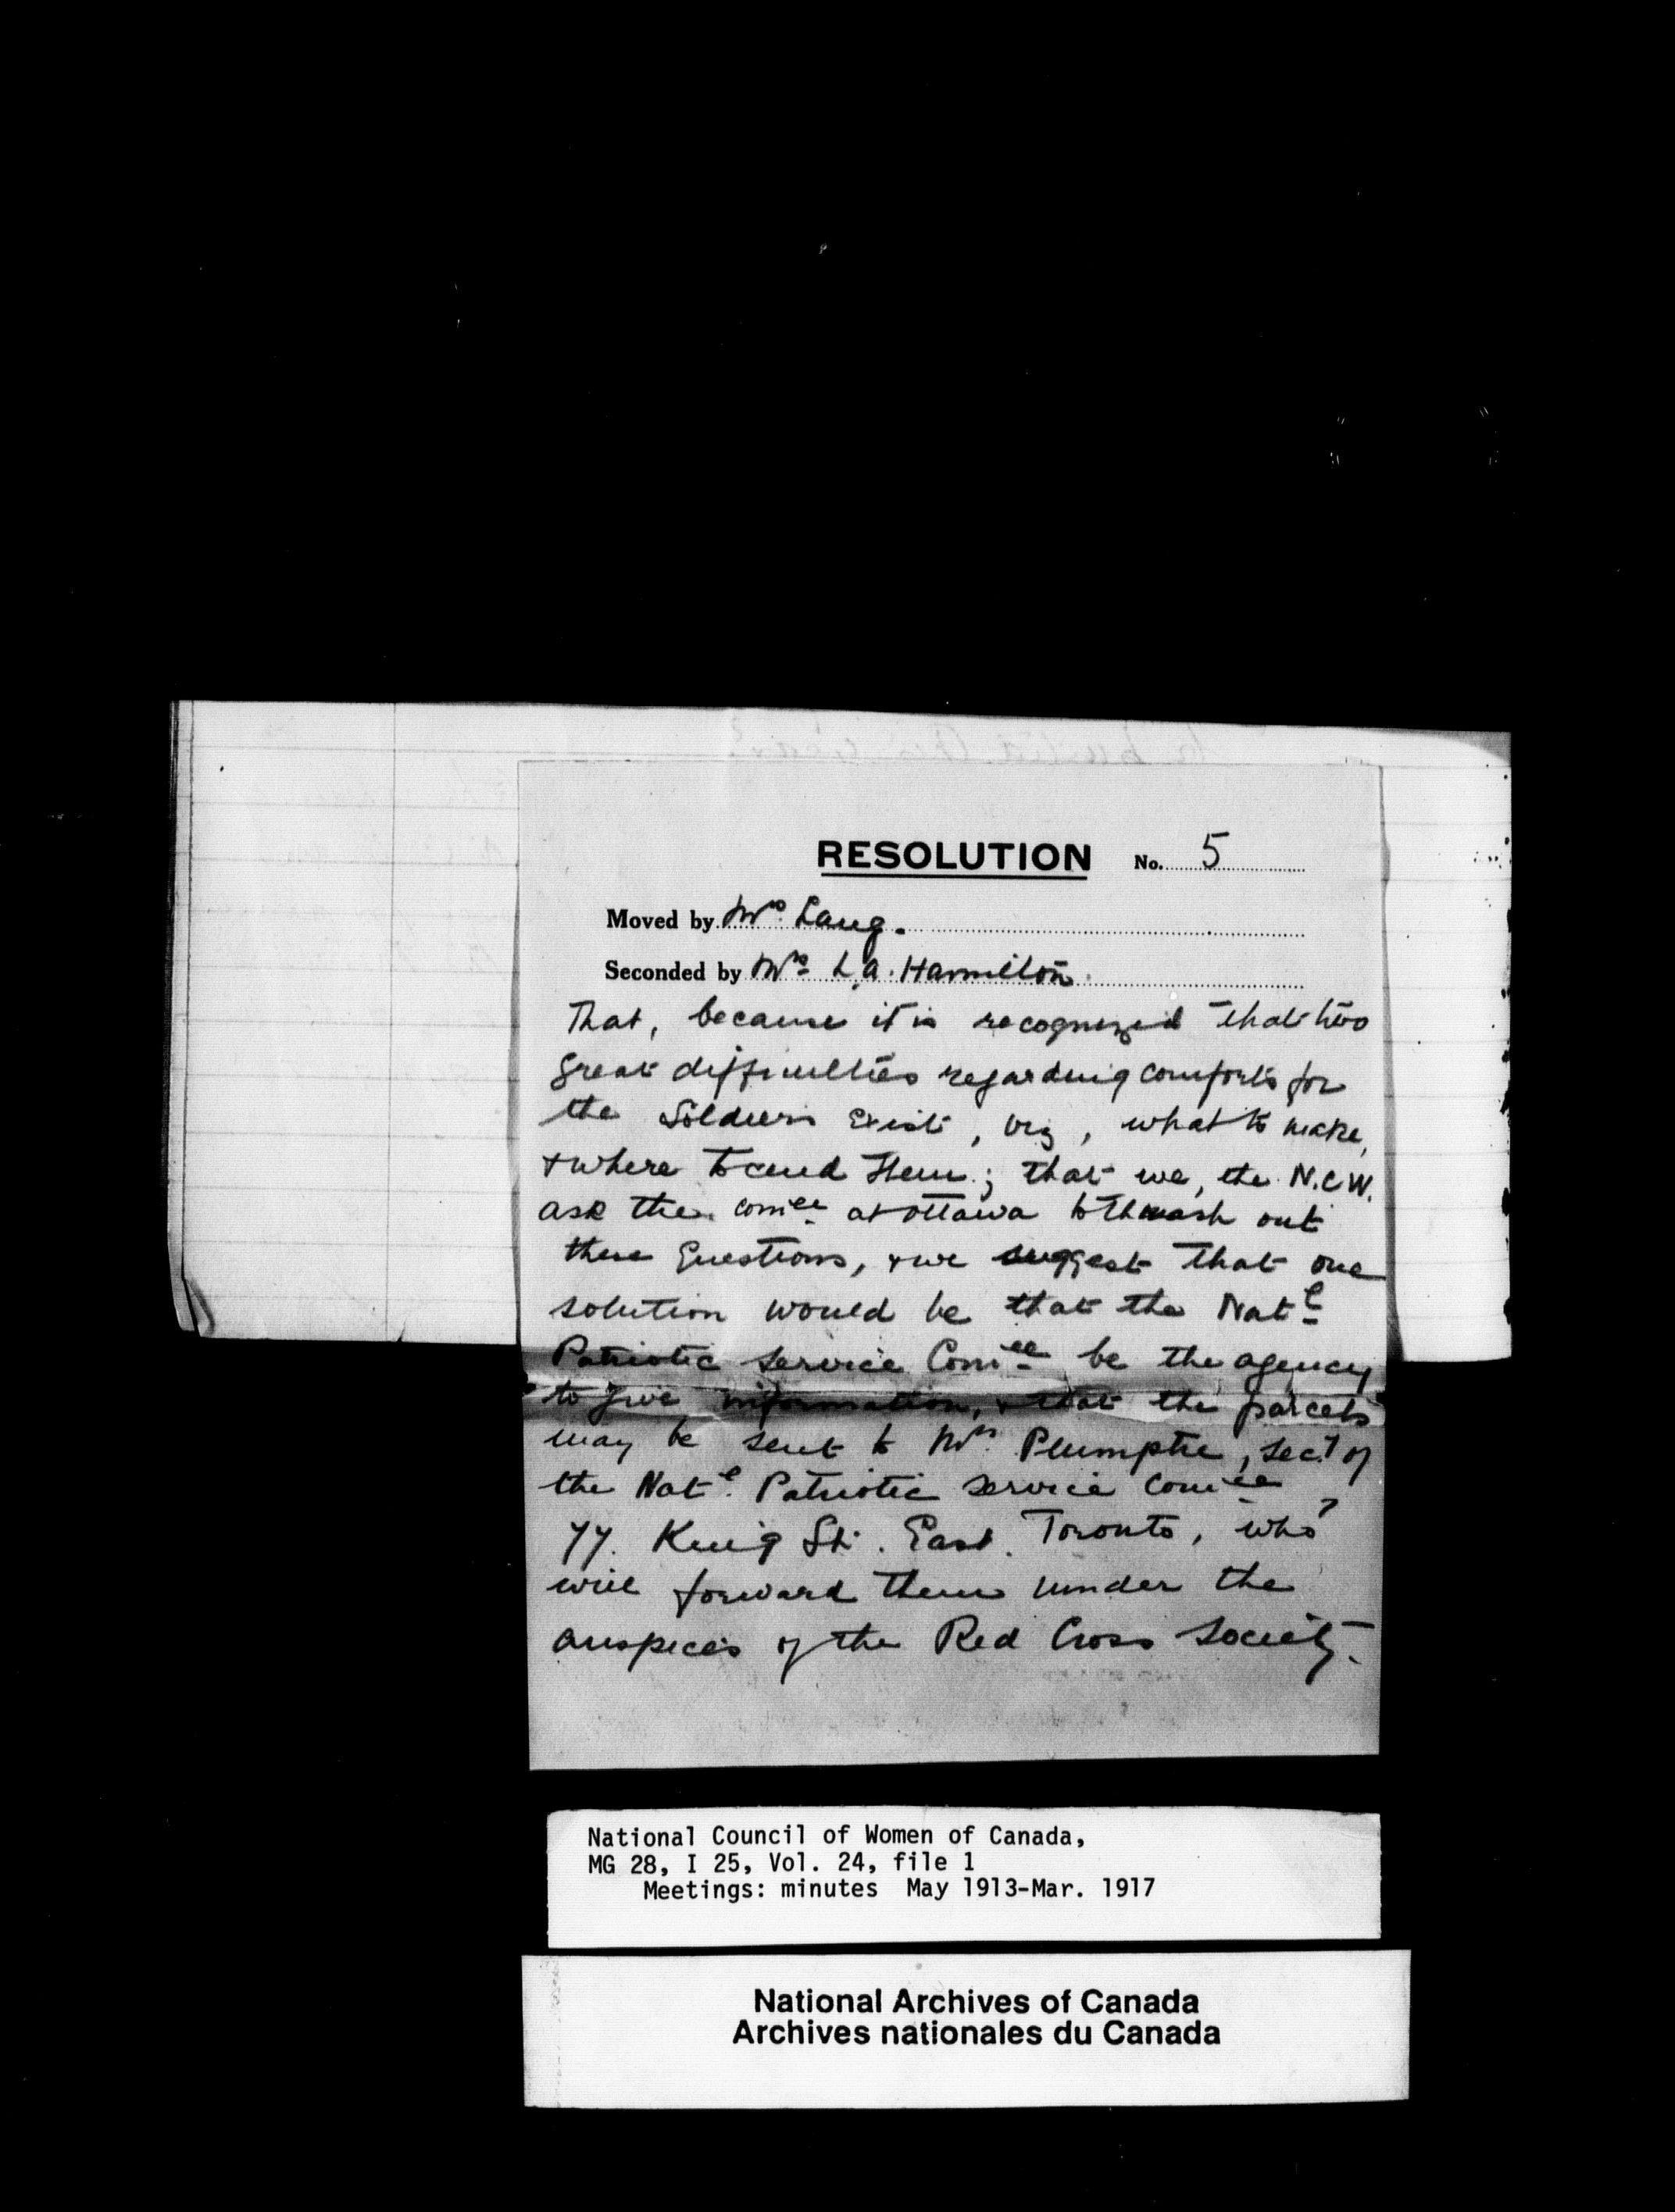 RESOLUTION No. 5
Moved by Mrs. Lang.
Seconded by Mrs L.A. Hamilton.
That, because it is recognized that two
great difficulties regarding comforts for
the Soldiers exist, viz, what to make,
& where to send them; that we, the N.C.W.
ask the Comee at Ottawa to thrash out
these Questions, & we suggest that one
solution would be that the Natl
Patriotic Service Comee be the agency
to give information, & that the parcels
may be sent to Mrs. Plumptre, Secy of
the Natl. Patriotic Service Comee,
77. King St. East. Toronto, who
will forward them under the
auspices of the Red Cross Society.
National Council of Women of Canada,
MG 28, I 25, Vol. 24, file 1
Meetings: minutes May 1913-Mar. 1917
National Archives of Canada
Archives nationales du Canada